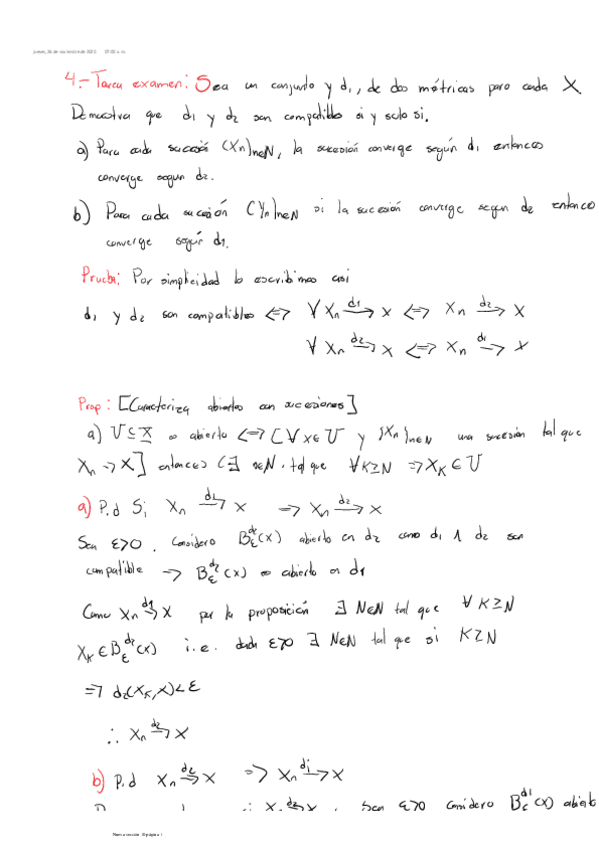 4.- Tarea examen: Sea un conjunto y d₁, de dos métricas para cada X.
Demuestra que d₁ y d₂ son compatibles si y solo si.
a) Para cada sucesión (Xₙ)ₙ∈ℕ, la sucesión converge según d₁ entonces
converge según d₂.
b) Para cada sucesión (Yₙ)ₙ∈ℕ si la sucesión converge según d₂ entonces
converge según d₁.
Prueba: Por simplicidad lo escribimos así
d₁ y d₂ son compatibles <=> ∀ Xₙ -d₁-> x <=> Xₙ -d₂-> X
∀ Xₙ -d₂-> x <=> Xₙ -d₁-> X
Prop: [Caracteriza abiertos con sucesiones]
a) U ⊆ X es abierto <=> [∀ x∈U y {Xₙ}ₙ∈ℕ una sucesión tal que
Xₙ -> X] entonces (∃ n∈N. tal que ∀K≥N => X_K ∈ U
a) P.d Si Xₙ -d₁-> x => Xₙ -d₂-> x
Sea ε>0. Considero B_ε^d₂(x) abierto en d₂ como d₁ ∧ d₂ son
compatible -> B_ε^d₂(x) es abierto en d₁
Como Xₙ -d₁-> X por la proposición ∃ N∈N tal que ∀ K≥N
X_K ∈ B_ε^d₂(x) i.e. dado ε>0 ∃ N∈N tal que si K≥N
=> d₂(X_K,X)<ε
∴ Xₙ -d₂-> X
b) P.d Xₙ -d₂-> X => Xₙ -d₁-> X
Xₙ -d₂-> X. Sea ε>0 considero B_ε^d₁(x) abierto